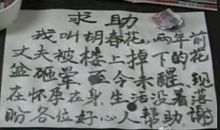 求助
我叫胡春花,两年前
丈夫被楼上掉下的花
盆砸晕至今未醒,现
在怀孕在身,生活没着落
盼各位好心人帮助谢